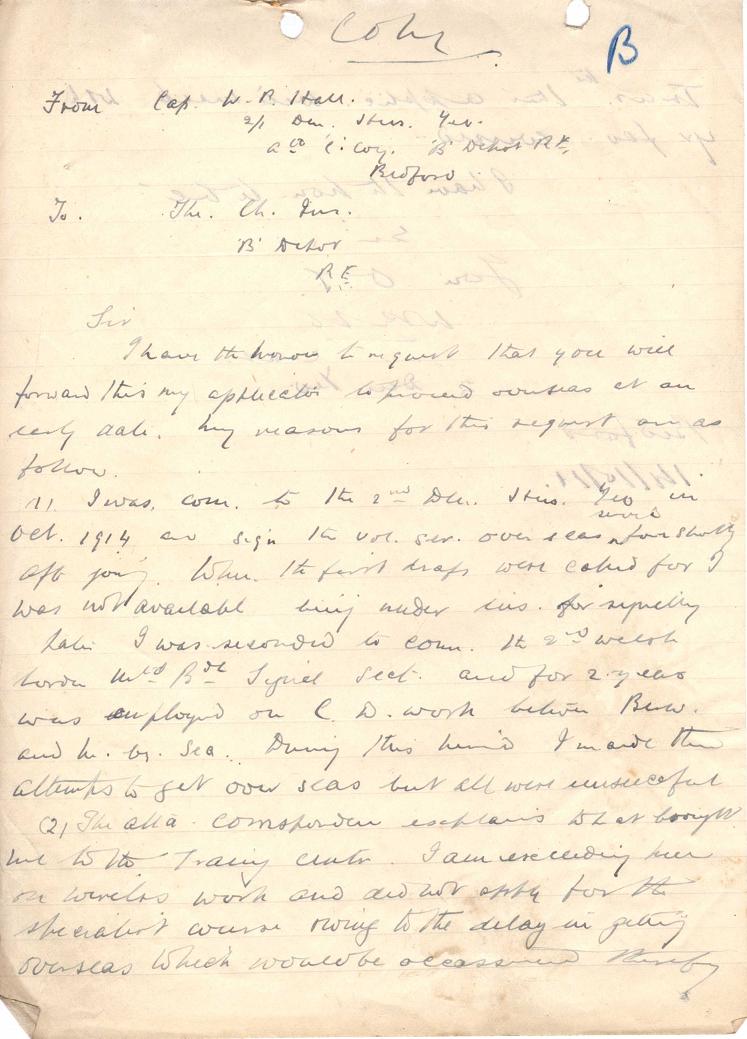 Copy
B
From Cap. W. R. Hall.
2/1 Den. Hus. Yeo.
a C. Coy. B Depot R.E.
Bedford
To. The. Ch. Ins.
'B' Depot
R.E.
Sir
I have the honour to request that you will
forward this my application to proceed overseas at an
early date. My reasons for this request are as
follow.
(1) I was. com. to the 2nd Den. Hus. Yeo in
Oct. 1914 and sign the vol. ser. over seas shortly
aft joing. When the first drafs were called for I
was not available being under ins. for signalling
Later I was seconded to com. the 2nd Welsh
border mtd Bde Signal Sect. and for 2 years
was employed on C. D. work between
and by Sea. During this I made
attempts to get over seas but all were unsuccessful
(2) The atta. correspondence explains what brought
me to the Traing centre. I am exceeding keen
on wireless work and did not apply for the
specialist course owing to the delay in getting
overseas which would be occassioned thereby